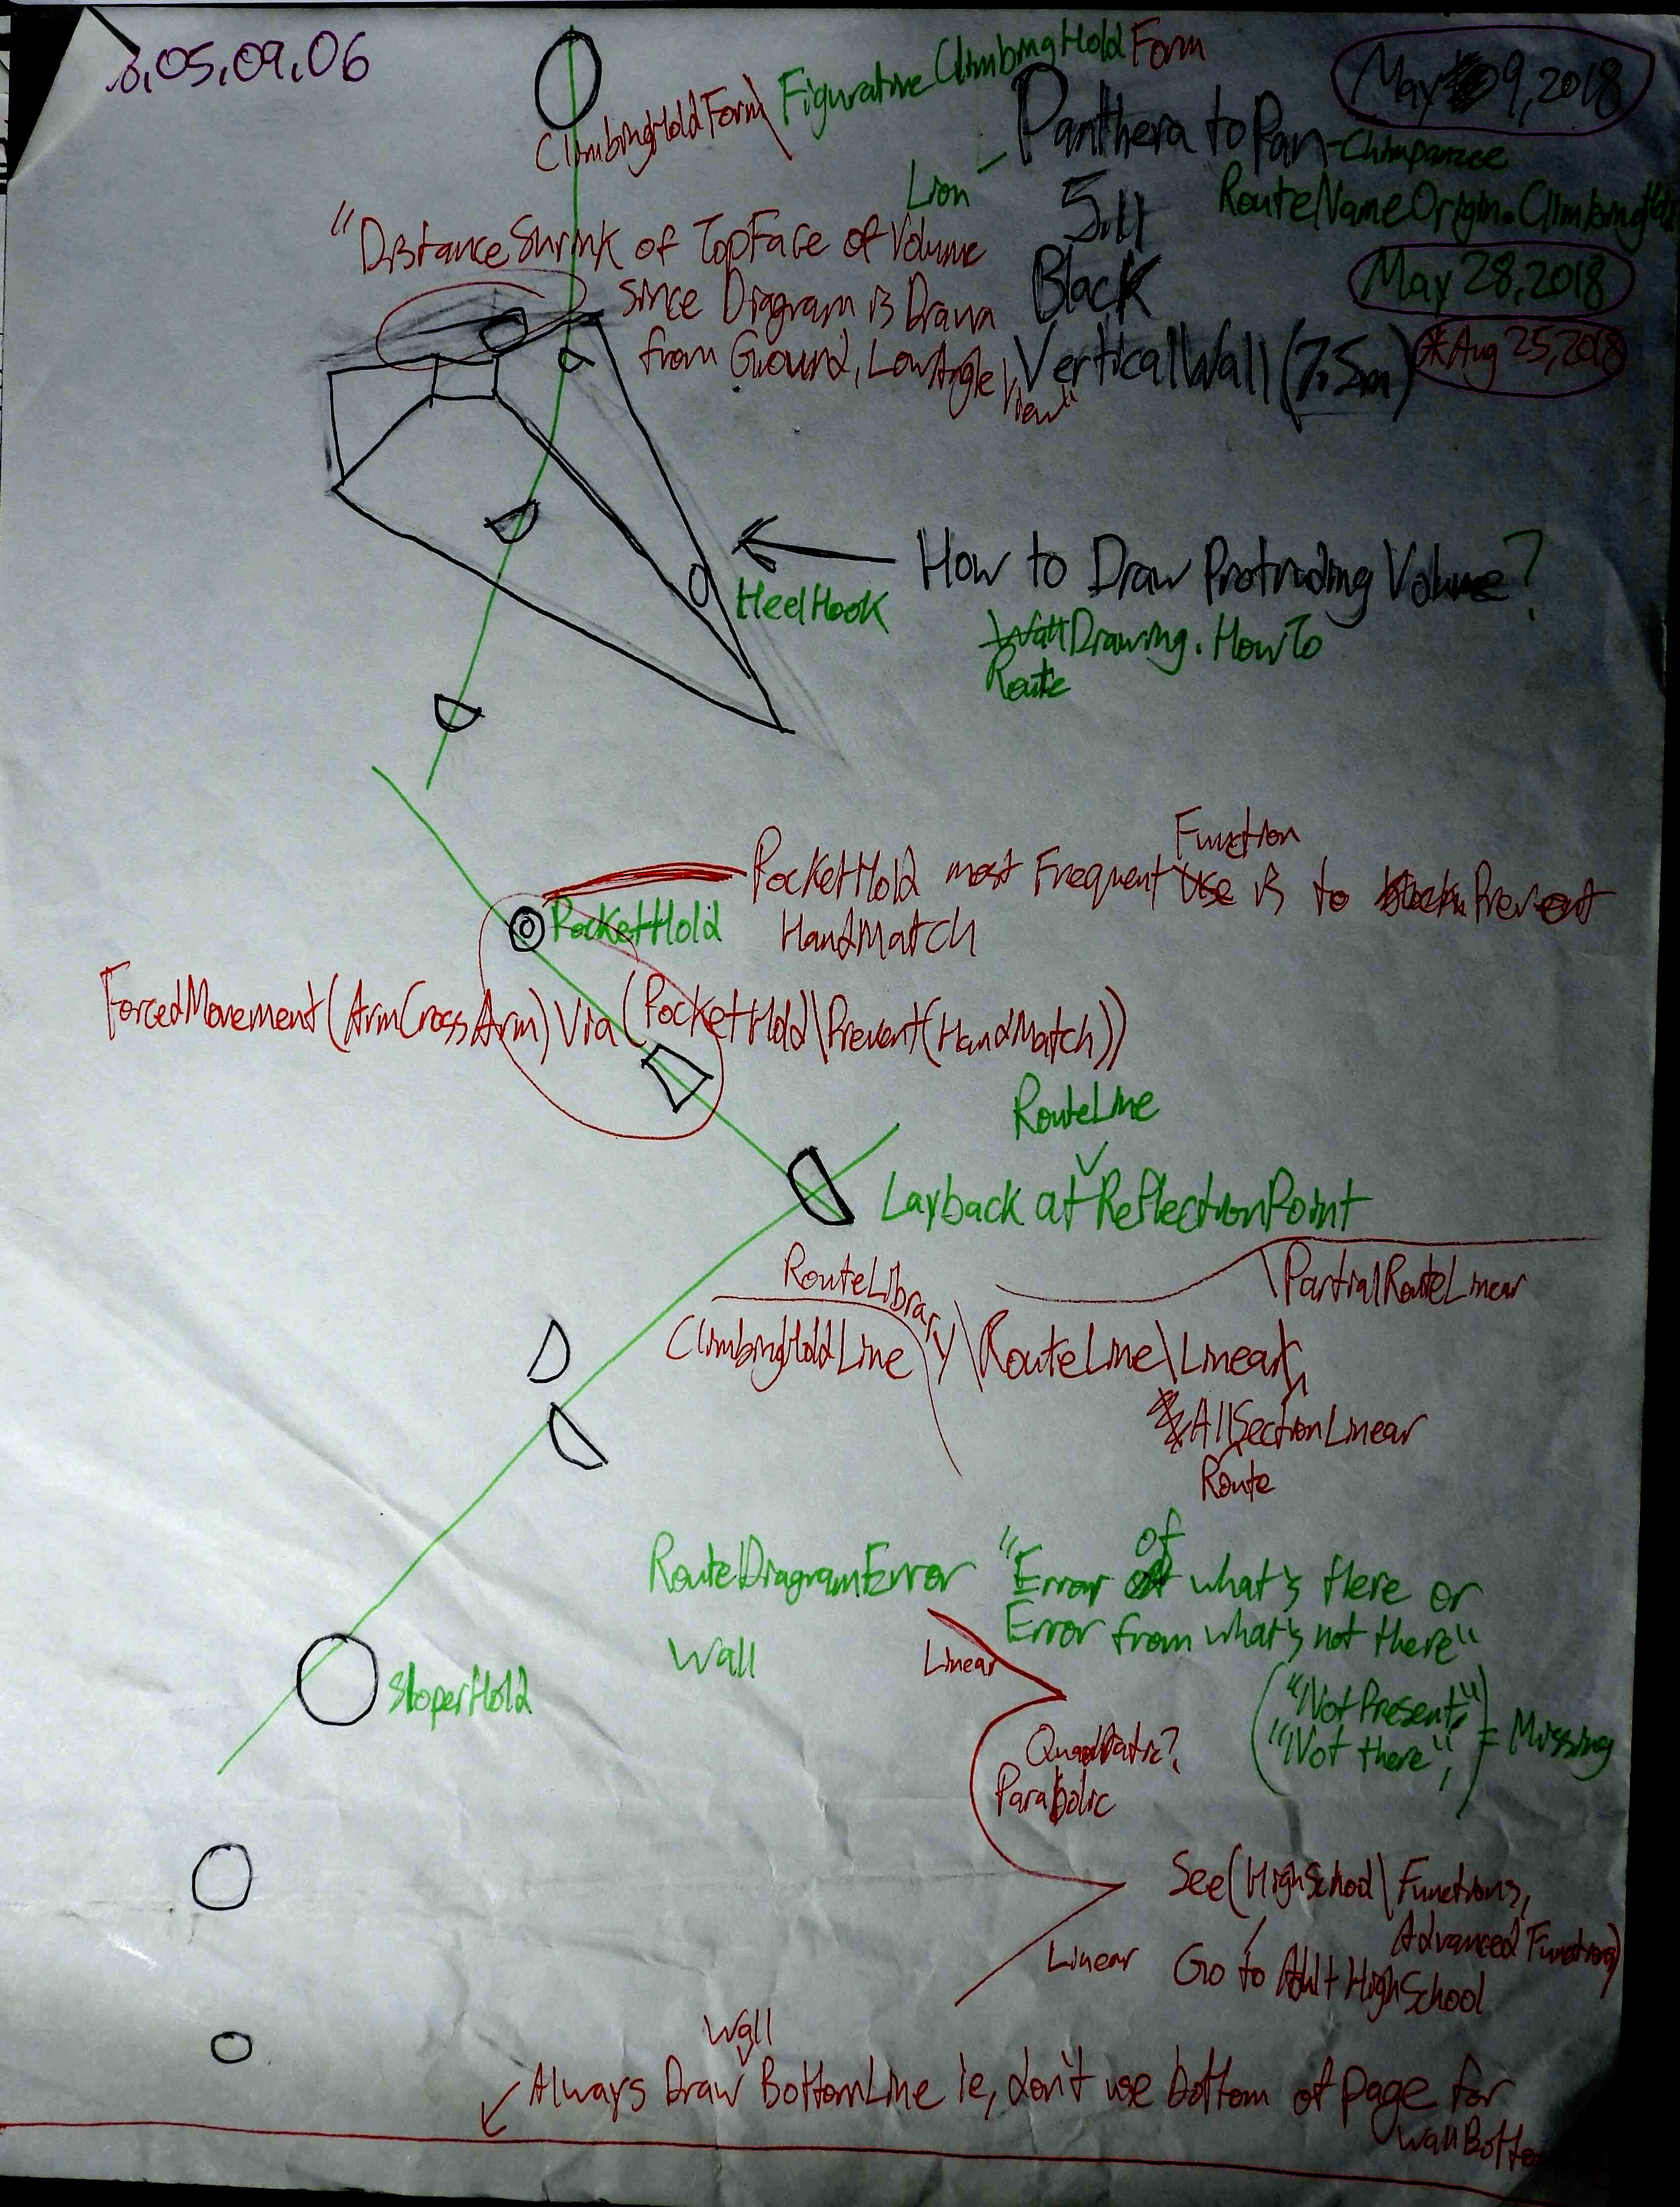 8,05,09,06
ClimbingHoldForm\FigurativeClimbingHoldForm
May 9, 2018
Panthera to Pan-Chimpanzee
Lion
5.11
RouteNameOrigin.Climbing
Black
May 28, 2018
VerticalWall (7.5m)
*Aug 25, 2018
"DistanceShrink of TopFace of Volume
since Diagram is Drawn
from Ground, LowAngle
View"
How to Draw Protruding Volume?
HeelHook
Wall Drawing.HowTo
Route
Function
PocketHold most Frequent Use is to Prevent
HandMatch
PocketHold
ForcedMovement(ArmCrossArm)Via(PocketHold\Prevent(HandMatch))
RouteLine
Layback at ReflectionPoint
RouteLibrary
\PartialRouteLinear
ClimbingHoldLine\ \RouteLine\Linear,
AllSectionLinear
Route
RouteDiagramError "Error of what's there or
Error from what's not there"
Wall
Linear
SloperHold
("NotPresent,"
"Not there",) = Missing
Quadratic?,
Parabolic
See(HighSchool\Functions,
Advanced Functions)
Linear
Go to Adult HighSchool
Wall
Always Draw BottomLine ie, don't use bottom of page for
WallBotto